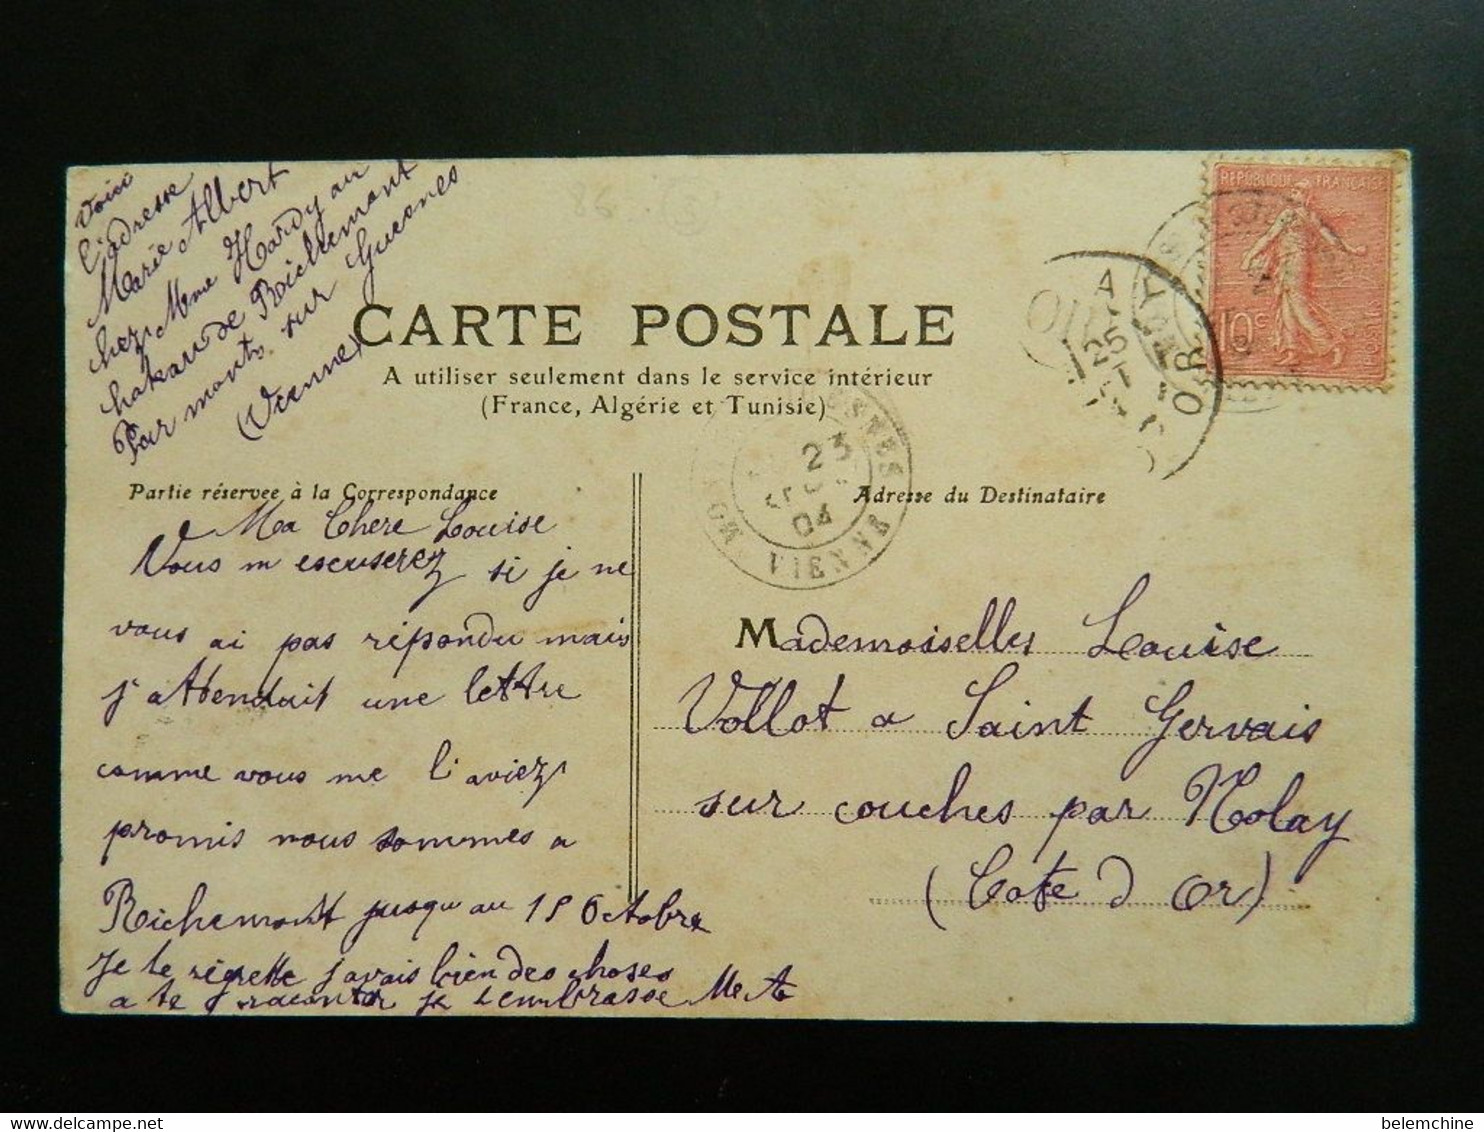 Voici
l'adresse
Marie Albert
chez Mme Hardy au
chateau de Richemont
Par monts sur Guesnes
(Vienne)
CARTE POSTALE
A utiliser seulement dans le service intérieur
(France, Algérie et Tunisie)
REPUBLIQUE FRANÇAISE
10c
A
25
OR
23
04
VIENNE
Partie réservée à la Correspondance
Adresse du Destinataire
Ma Chere Louise
Vous m escuserez si je ne
vous ai pas répondu mais
j'attendait une lettre
comme vous me l'aviez
promis nous sommes a
Richemont jusqu au 15 Octobre
je le régrette j'avais bien des choses
a te raconter je t'embrasse M A
Mademoiselles Louise
Vollot a Saint Gervais
sur couches par Nolay
(Cote d Or)
belemchine